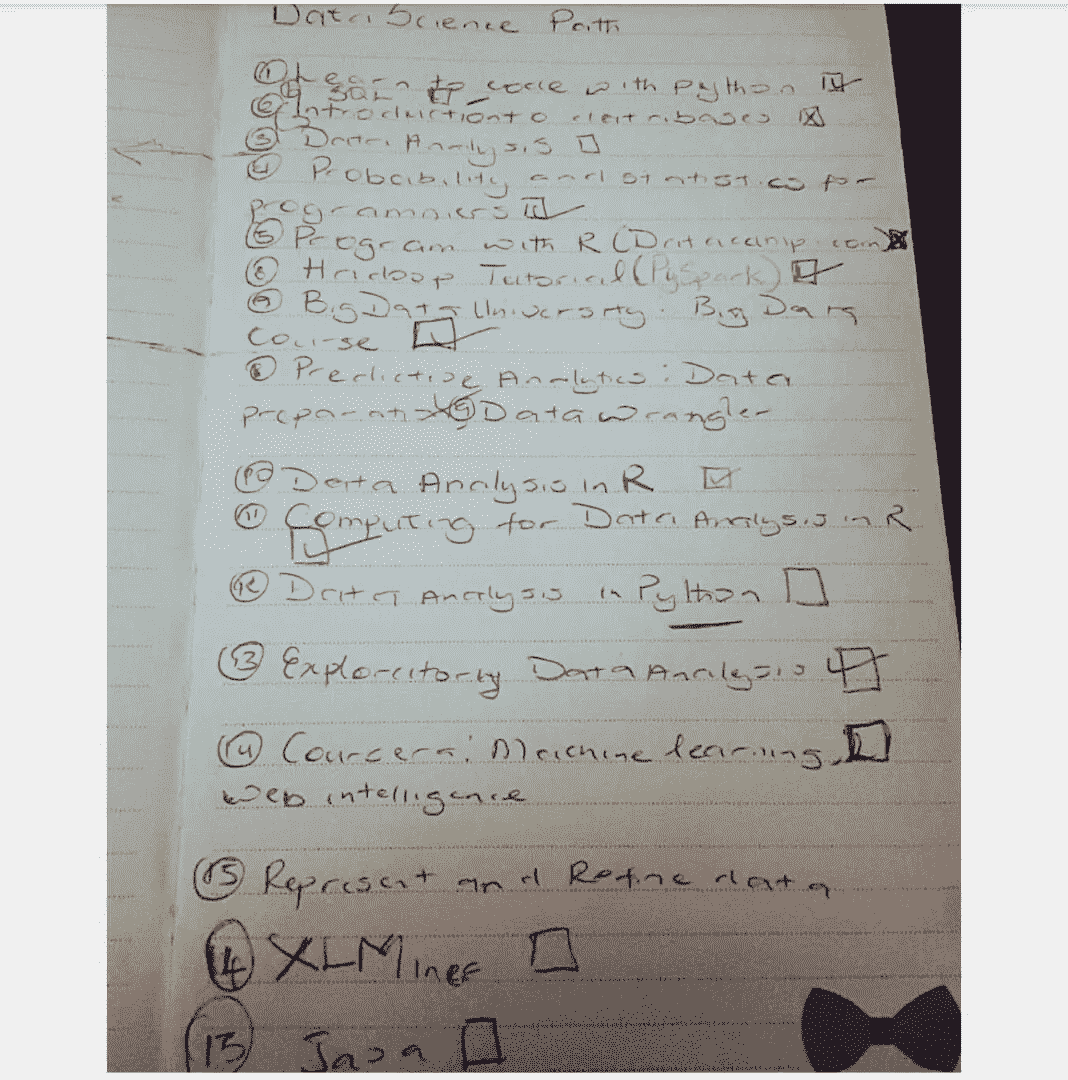 Data Science Path
① Learn to code with python ☑
ⓑ SQL
② Introduction to databases ☒
③ Data Analysis ☐
④ Probability and statistics for
programmers ☑
⑤ Program with R (Datacamp.com) ☒
⑧ Hadoop Tutorial (PySpark) ☑
⑨ BigData University. Big Data
Course ☑
⑧ Predictive Analytics: Data
preparation ⑨ Data wrangler
⑩ Data Analysis in R ☑
⑪ Computing for Data Analysis in R
☑
⑫ Data Analysis in Python ☐
⑬ Exploratory Data Analysis ☑
⑭ Coursera: Machine learning, ☐
web intelligence
⑮ Represent and Refine data
⑭ XLMiner ☐
⑮ Java ☐